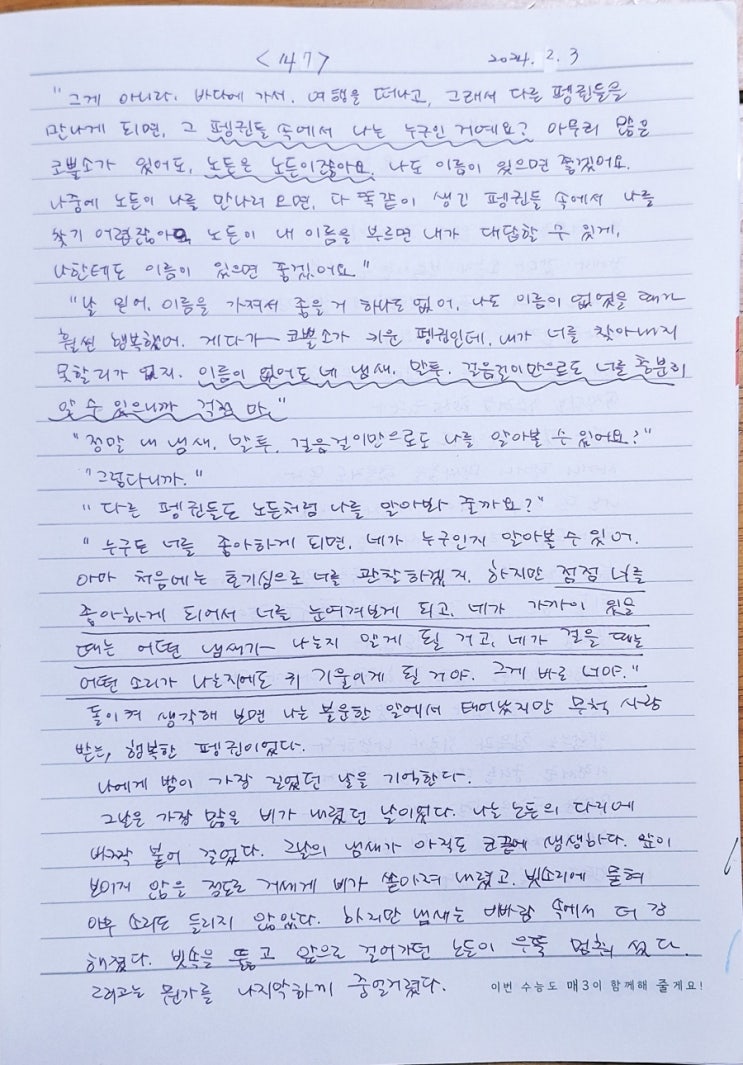 <147>
2024. 2. 3
"그게 아니라. 바다에 가서. 여행을 떠나고, 그래서 다른 펭귄들을
만나게 되면, 그 펭귄들 속에서 나는 누구인 거예요? 아무리 많은
코뿔소가 있어도, 노든은 노든이잖아요. 나도 이름이 있으면 좋겠어요.
나중에 노든이 나를 만나러 오면, 다 똑같이 생긴 펭귄들 속에서 나를
찾기 어렵잖아요 노든이 내 이름을 부르면 내가 대답할 수 있게,
나한테도 이름이 있으면 좋겠어요"
"날 믿어. 이름을 가져서 좋을 거 하나도 없어. 나도 이름이 없었을 때가
훨씬 행복했어. 게다가 코뿔소가 키운 펭귄인데, 내가 너를 찾아내지
못할리가 없지. 이름이 없어도 네 냄새. 말투. 걸음걸이만으로도 너를 충분히
알 수 있으니까 걱정 마."
"정말 내 냄새. 말투. 걸음걸이만으로도 나를 알아볼 수 있어요?"
"그렇다니까."
"다른 펭귄들도 노든처럼 나를 알아봐 줄까요?"
"누구든 너를 좋아하게 되면. 네가 누구인지 알아볼 수 있어.
아마 처음에는 호기심으로 너를 관찰하겠지. 하지만 점점 너를
좋아하게 되어서 너를 눈여겨보게 되고, 네가 가까이 있을
때는 어떤 냄새가 나는지 알게 될 거고, 네가 걸을 때는
어떤 소리가 나는지에도 귀 기울이게 될 거야. 그게 바로 너야."
돌이켜 생각해 보면 나는 불운한 알에서 태어났지만 무척 사랑
받는, 행복한 펭귄이었다.
나에게 밤이 가장 길었던 날을 기억한다.
그날은 가장 많은 비가 내렸던 날이었다. 나는 노든의 다리에
바짝 붙어 걸었다. 그날의 냄새가 아직도 코끝에 생생하다. 앞이
보이지 않을 정도로 거세게 비가 쏟아져 내렸고, 빗소리에 묻혀
아무 소리도 들리지 않았다. 하지만 냄새는 비바람 속에서 더 강
해졌다. 빗속을 뚫고 앞으로 걸어가던 노든이 우뚝 멈춰 섰다.
그리고는 뭔가를 나지막하게 중얼거렸다.
이번 수능도 매3이 함께해 줄게요!